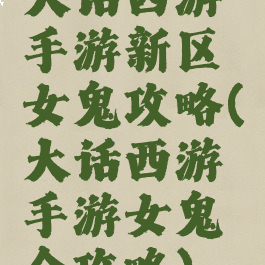 大话西游
手游新区
女鬼攻略(
大话西游
手游女鬼
全攻略)